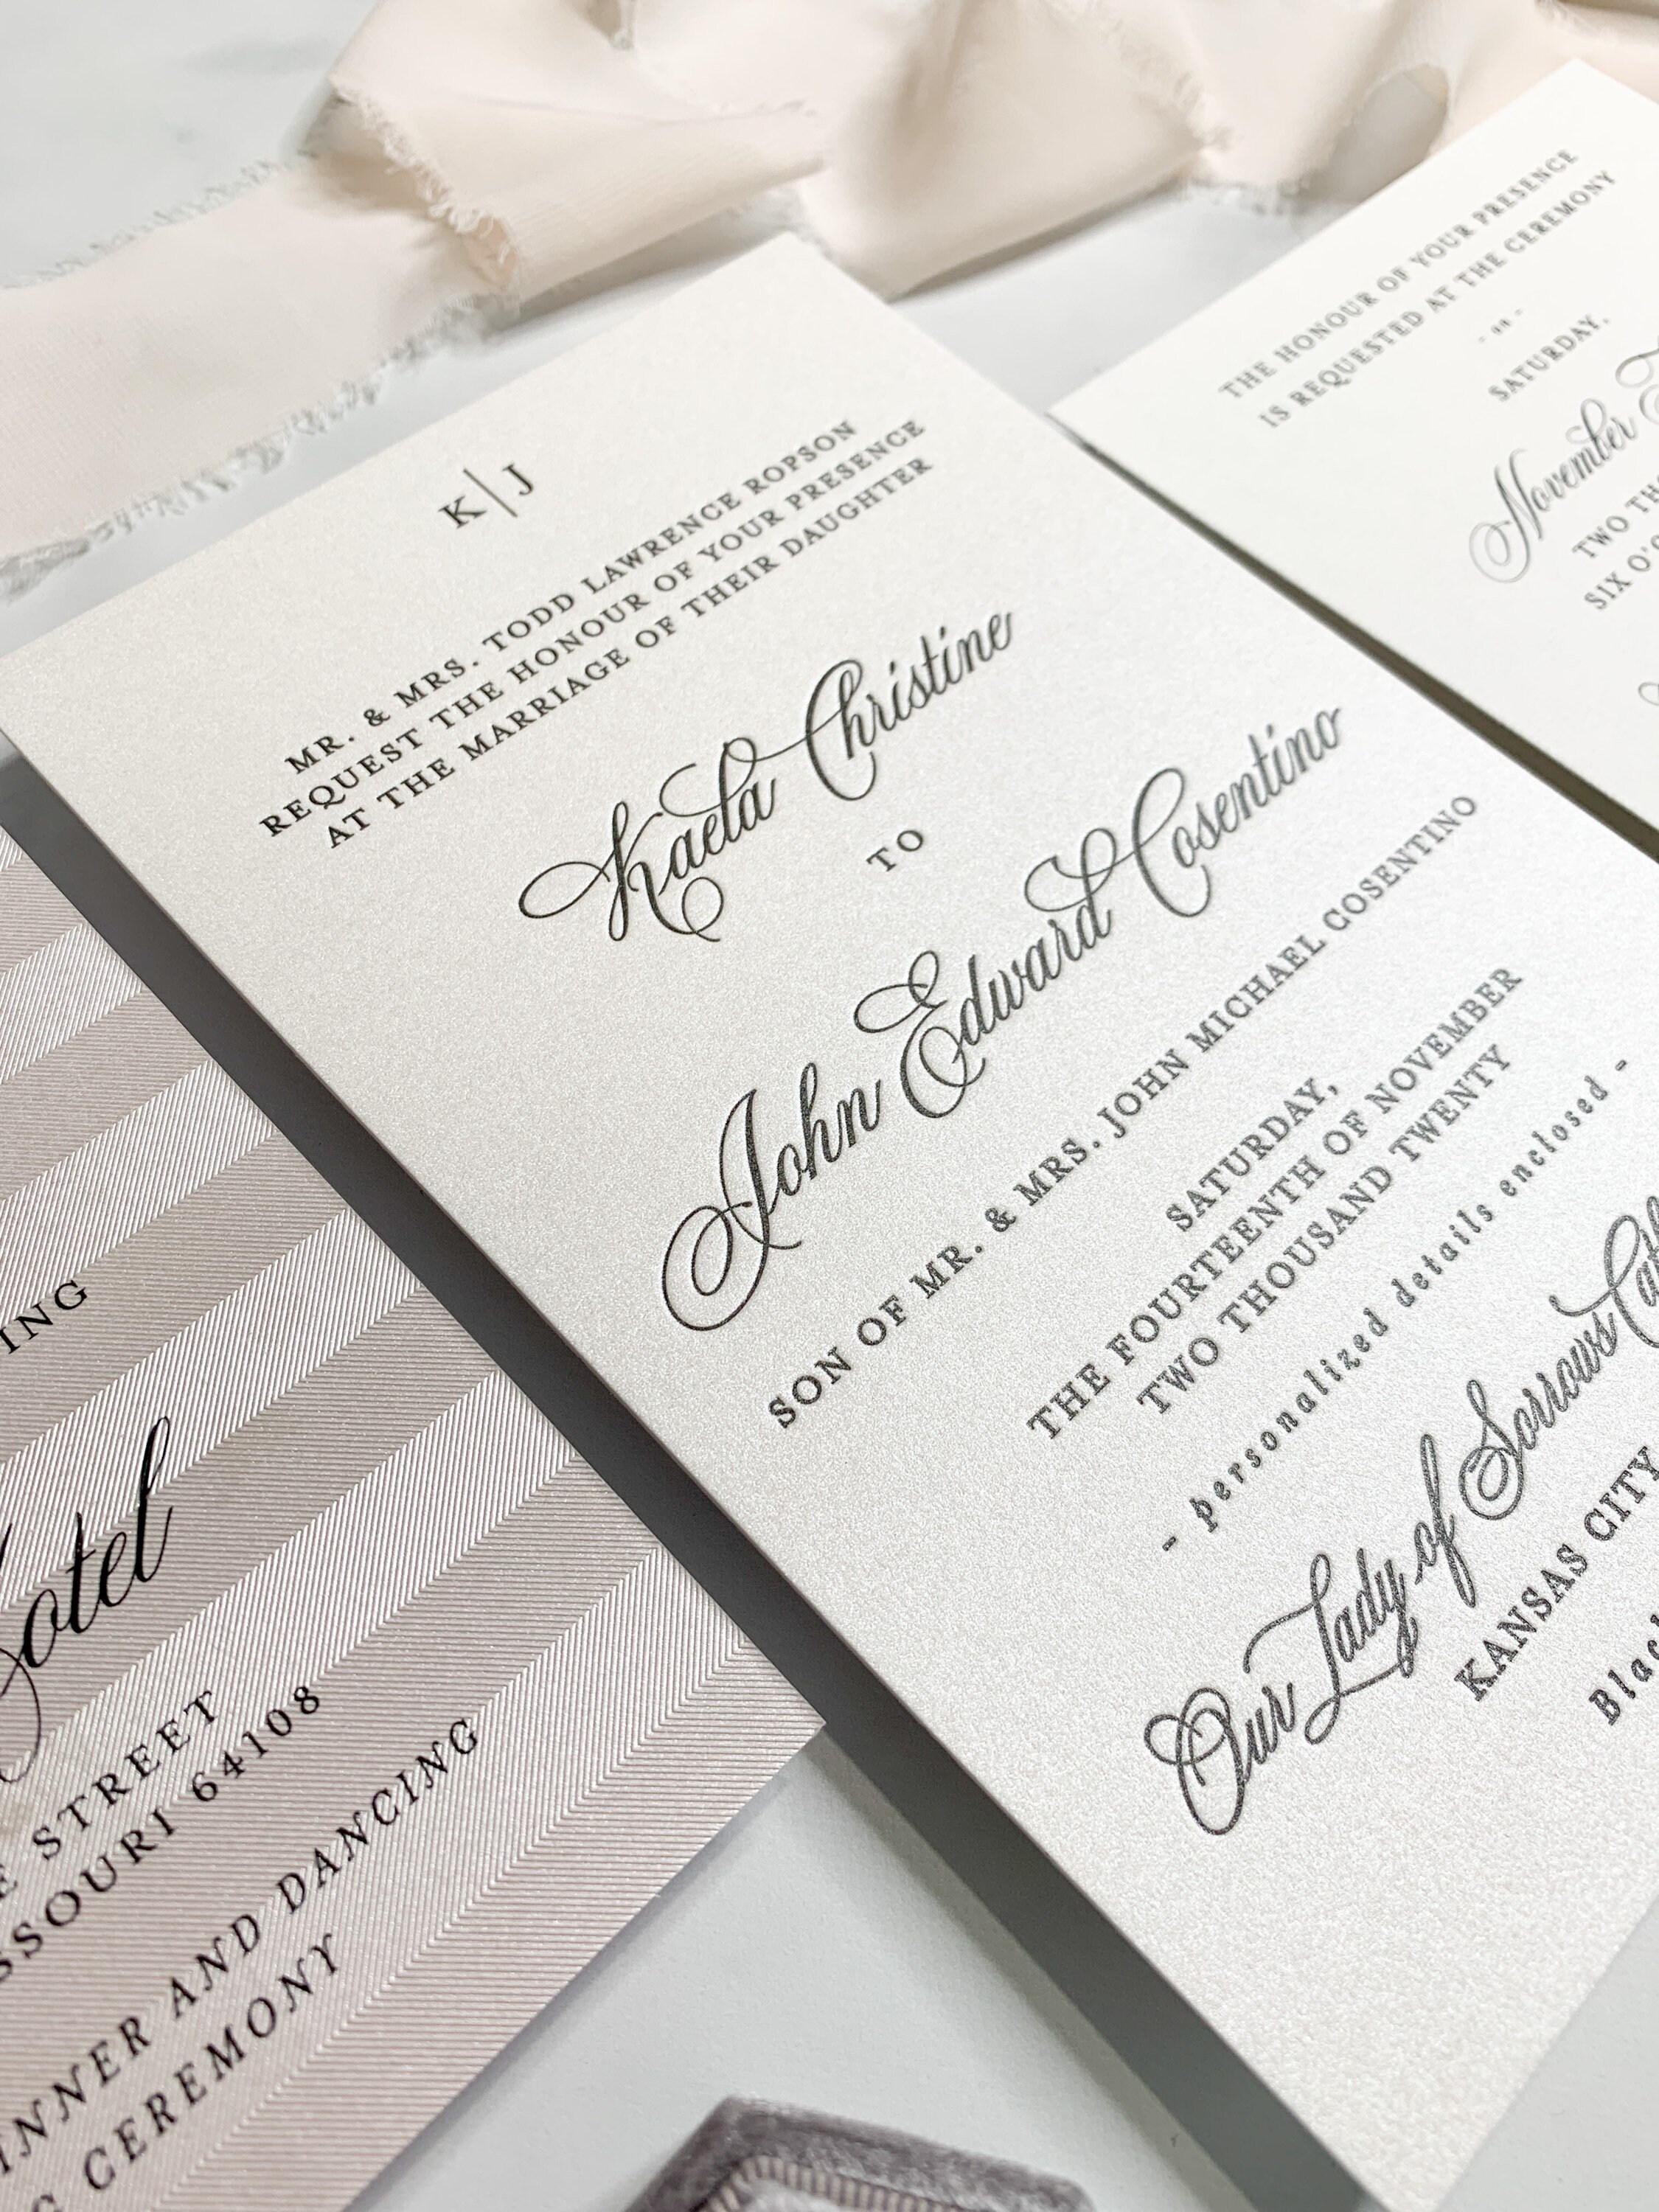 K | J
MR. & MRS. TODD LAWRENCE ROPSON
REQUEST THE HONOUR OF YOUR PRESENCE
AT THE MARRIAGE OF THEIR DAUGHTER
Kaela Christine
TO
John Edward Cosentino
SON OF MR. & MRS. JOHN MICHAEL COSENTINO
SATURDAY,
THE FOURTEENTH OF NOVEMBER
TWO THOUSAND TWENTY
- personalized details enclosed -
Our Lady of Sorrows
KANSAS CITY
THE HONOUR OF YOUR PRESENCE
IS REQUESTED AT THE CEREMONY
- on -
SATURDAY,
November
TWO
SIX
STREET
64108
AND DANCING
CEREMONY